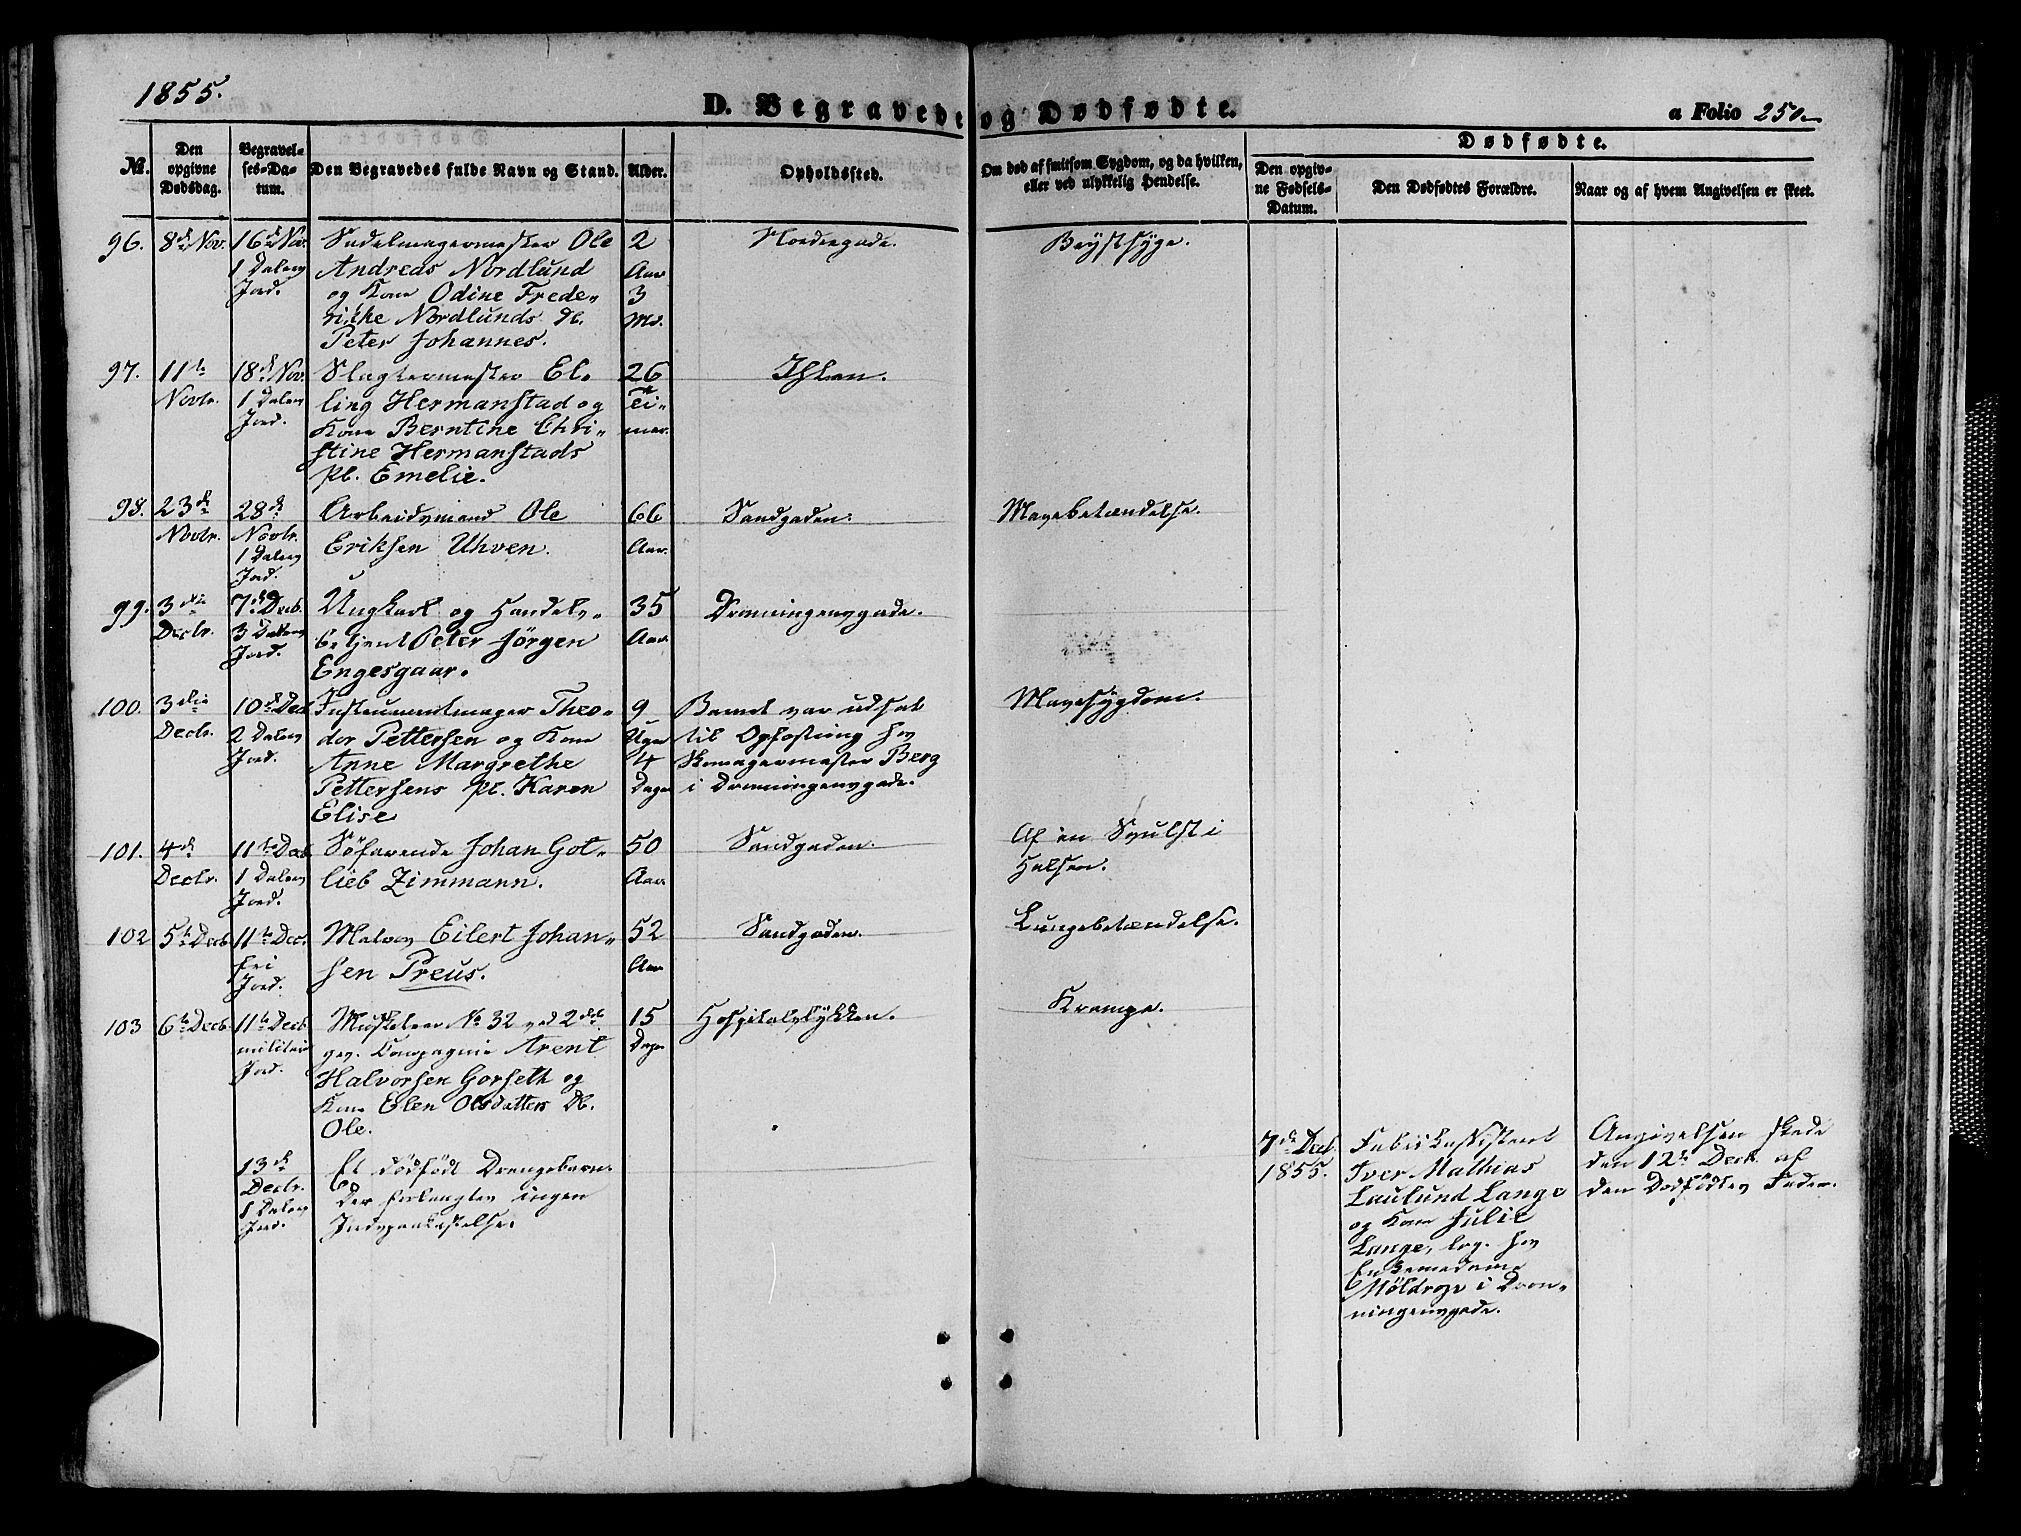 1855.
D. Begravede og Dødfødte.
a Folio 250
No.
Den opgivne Dødsdag.
Begravelses-Datum.
Den Begravedes fulde Navn og Stand.
Alder.
Opholdssted.
Om død af smitsom Sygdom, og da hvilken,
eller ved ulykkelig Hendelse.
Dødfødte.
Den opgivne Fødsels-Datum.
Den Dødfødtes Forældre.
Naar og af hvem Angivelsen er skeet.
96. 8de Nov. 16de Nov. Sadelmagermester Ole 2 Nordregade. Brystsyge.
1 Dalers Andreas Nordlund Aar
Jord. og Kone Odine Frede- 3
rikke Nordlunds Db. Md.
Peter Johannes.
97. 11te 18de Nov. Slagtermester El- 26 Ihlen.
Novbr. 1 Dalers ling Hermanstad og Ti-
Jord. Kone Berntine Chri- mer.
stine Hermanstads
Pb. Emelie.
98. 23de 28de Arbeidsmand Ole 66 Sandgaden. Mavebetændelse.
Novbr. Novbr. Eriksen Uhven. Aar.
1 Dalers
Jord.
99. 3die 7de Decb. Ungkarl og Handels- 35 Dronningensgade.
Decbr. 3 Dalers betjent Peter Jörgen Aar.
Jord. Engesgaar.
100. 3die 10de Dec Instrumentmager Theo- 9 Barnet var udsat Mavesygdom.
Decbr. 2 Dalers dor Pettersen og Kone Uger til Opfostring hos
Jord. Anne Margrethe 4 Skomagermester Berg
Pettersens Pb. Karen Dage i Dronningensgade.
Elise
101. 4de 11te Decb. Söfarende Johan Got- 50 Sandgaden. Af en Svulst i
Decbr. 1 Dalers lieb Zimmann. Aar. Halsen.
Jord.
102 5te Decb. 11te Dec. Matros Eilert Johan- 52 Sandgaden. Lungebetændelse.
fri sen Preus. Aar
Jord.
103 6te Decb. 11te Decb. Musketeer No 32 ved 2det 15 Hospitalslökken. Krampe.
militair gev. Kompagnie Arent Dage
Jord. Halvorsen Gorseth og
Kone Elen Olsdatters Db.
Ole.
13de Et dödfödt Drengebarn.
Decbr. Der forlangtes ingen
1 Dalers Jordpaakastelse.
Jord.
7de Decb. Angivelsen skede
1855. Iver Mathias den 12te Decb. af
Laulund Lange den Dödfödtes Fader.
og Kone Julie
Lange, log. hos
Enkemadame
Möldrop i Dron-
ningensgade.